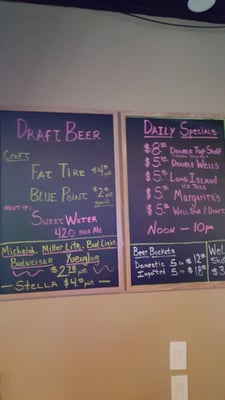 Draft Beer
Craft
Fat Tire $4
Blue Point $2
Next up:
Sweet Water
420 Pale Ale
Michelob, Miller Lite, Bud Light
Budweiser Yuengling
Stella $4
Daily Specials
$8 Double Top Shelf
$5 Double Wells
$5 Long Island
Ice Teas
$5 Margarita's
$5
Noon - 10pm
Beer Buckets
Domestic 5 $12
Imported 5 $18